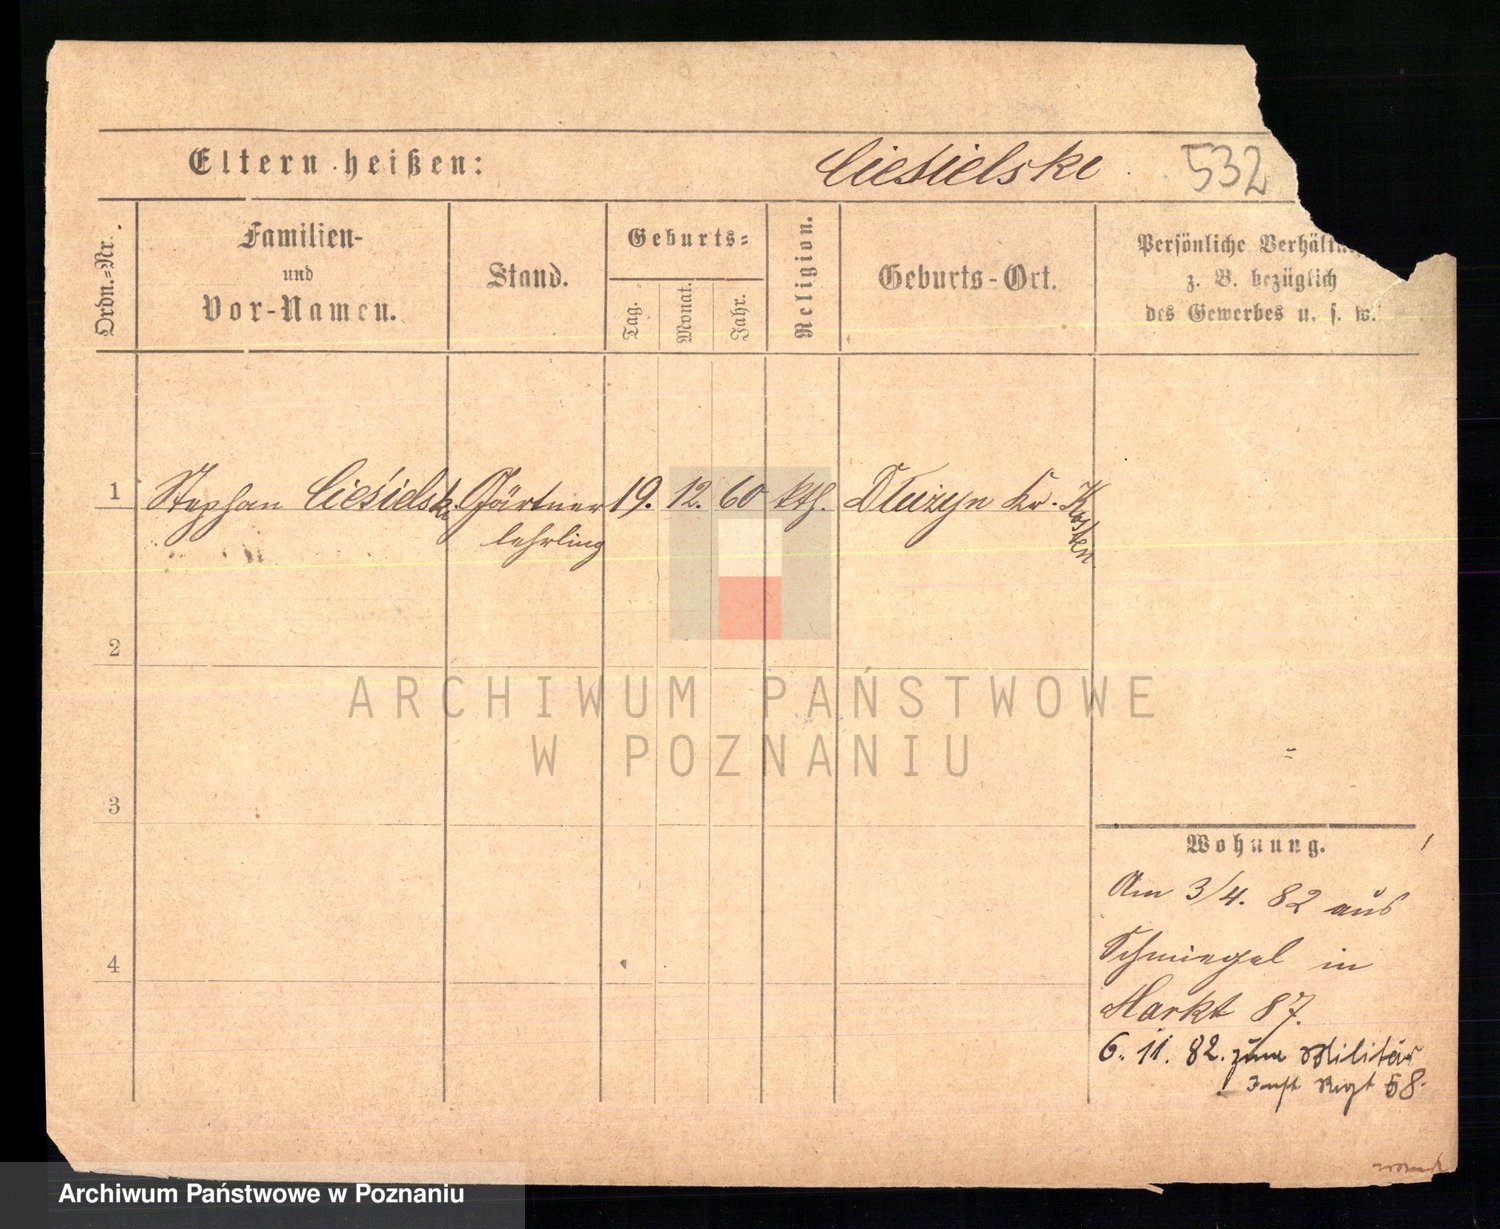 Eltern heißen: Ciesielski 532
Ordn.-Nr.
Familien-
und
Vor-Namen.
Stand.
Geburts-
Tag.
Monat.
Jahr.
Religion.
Geburts-Ort.
Persönliche Verhält
z. B. bezüglich
des Gewerbes u. s. w.
1 Stephan Ciesielski Gärtner 19. 12. 60 kth. Dłużyn Kr. Kosten
lehrling
2
ARCHIWUM PAŃSTWOWE
W POZNANIU
3
Wohnung.
Am 3/4. 82 aus
Schmiegel in
4
Markt 87.
6. 11. 82. zum Militär
Inft. Regt 58.
Archiwum Państwowe w Poznaniu